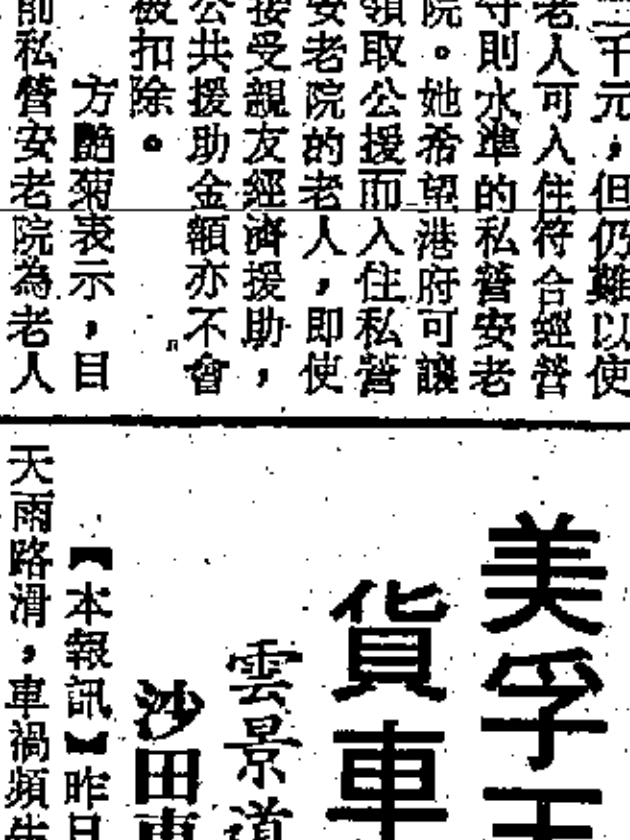 二千元，但仍難以使
老人可入住符合經營
守則水準的私營安老
院。她希望港府可讓
領取公援而入住私營
安老院的老人，即使
接受親友經濟援助，
公共援助金額亦不會
被扣除。
方艷菊表示，目
前私營安老院為老人
美孚
貨車
雲景道
沙田車
【本報訊】昨日
天雨路滑，車禍頻